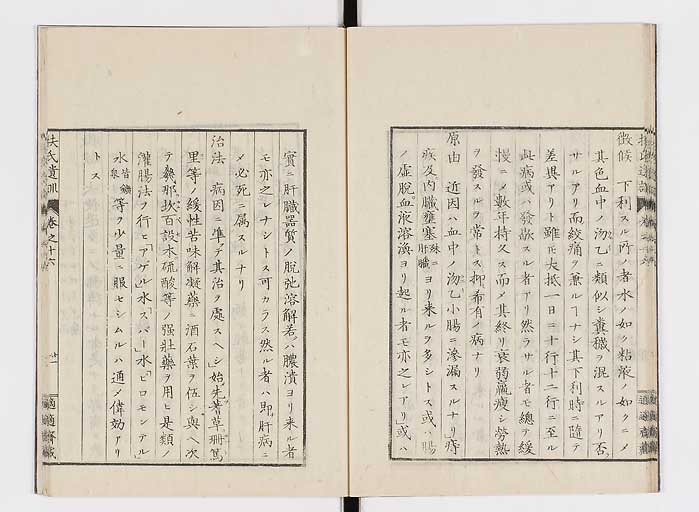 徴候 下利スル所ノ者水ノ如ク粘液ノ如クニメ
其色血中ノ沕乙ニ類似シ糞穢ヲ混スルアリ否
サルアリ而絞痛ヲ兼ルヿナシ其下利時ニ隨テ
差異アリト雖𪜈大抵一日ニ十行十二行ニ至ル
此病或ハ發歇スル者アリ然ラサル者モ總テ緩
慢ニメ數年持久ス而メ其終リ衰弱羸瘦シ勞熱
ヲ發スルヲ常トス抑希有ノ病ナリ
原由 近因ハ血中ノ沕乙小腸ニ滲漏スルナリ痔
疾及内臟壅塞殊ニ肝臟ヨリ来ルヲ多シトス或ハ腸
ノ虚脱血液溶渙ヨリ起ル者モ亦之レアリ或ハ
實ニ肝臟器質ノ脱弛溶解若クハ膿潰ヨリ来ル者
モ亦之レナシトス可カラス然ル者ハ即肝病ニ
メ必死ニ属スルナリ
治法 病因ニ準テ其治ヲ處スヘシ始先蓍草珊篤
里等ノ緩性苦味解凝藥ニ酒石葉ヲ伍シ與ヘ次
テ幾那坎百設木硫酸等ノ强壯藥ヲ用ヒ是類ノ
灌腸法ヲ行ヒ「アゲル」水スパー水「ピロモンアル」
水皆鑛泉等ヲ少量ニ服セシムルハ通メ偉効アリ
トス
扶氏遺訓 卷之十六 廿一 適適齋藏